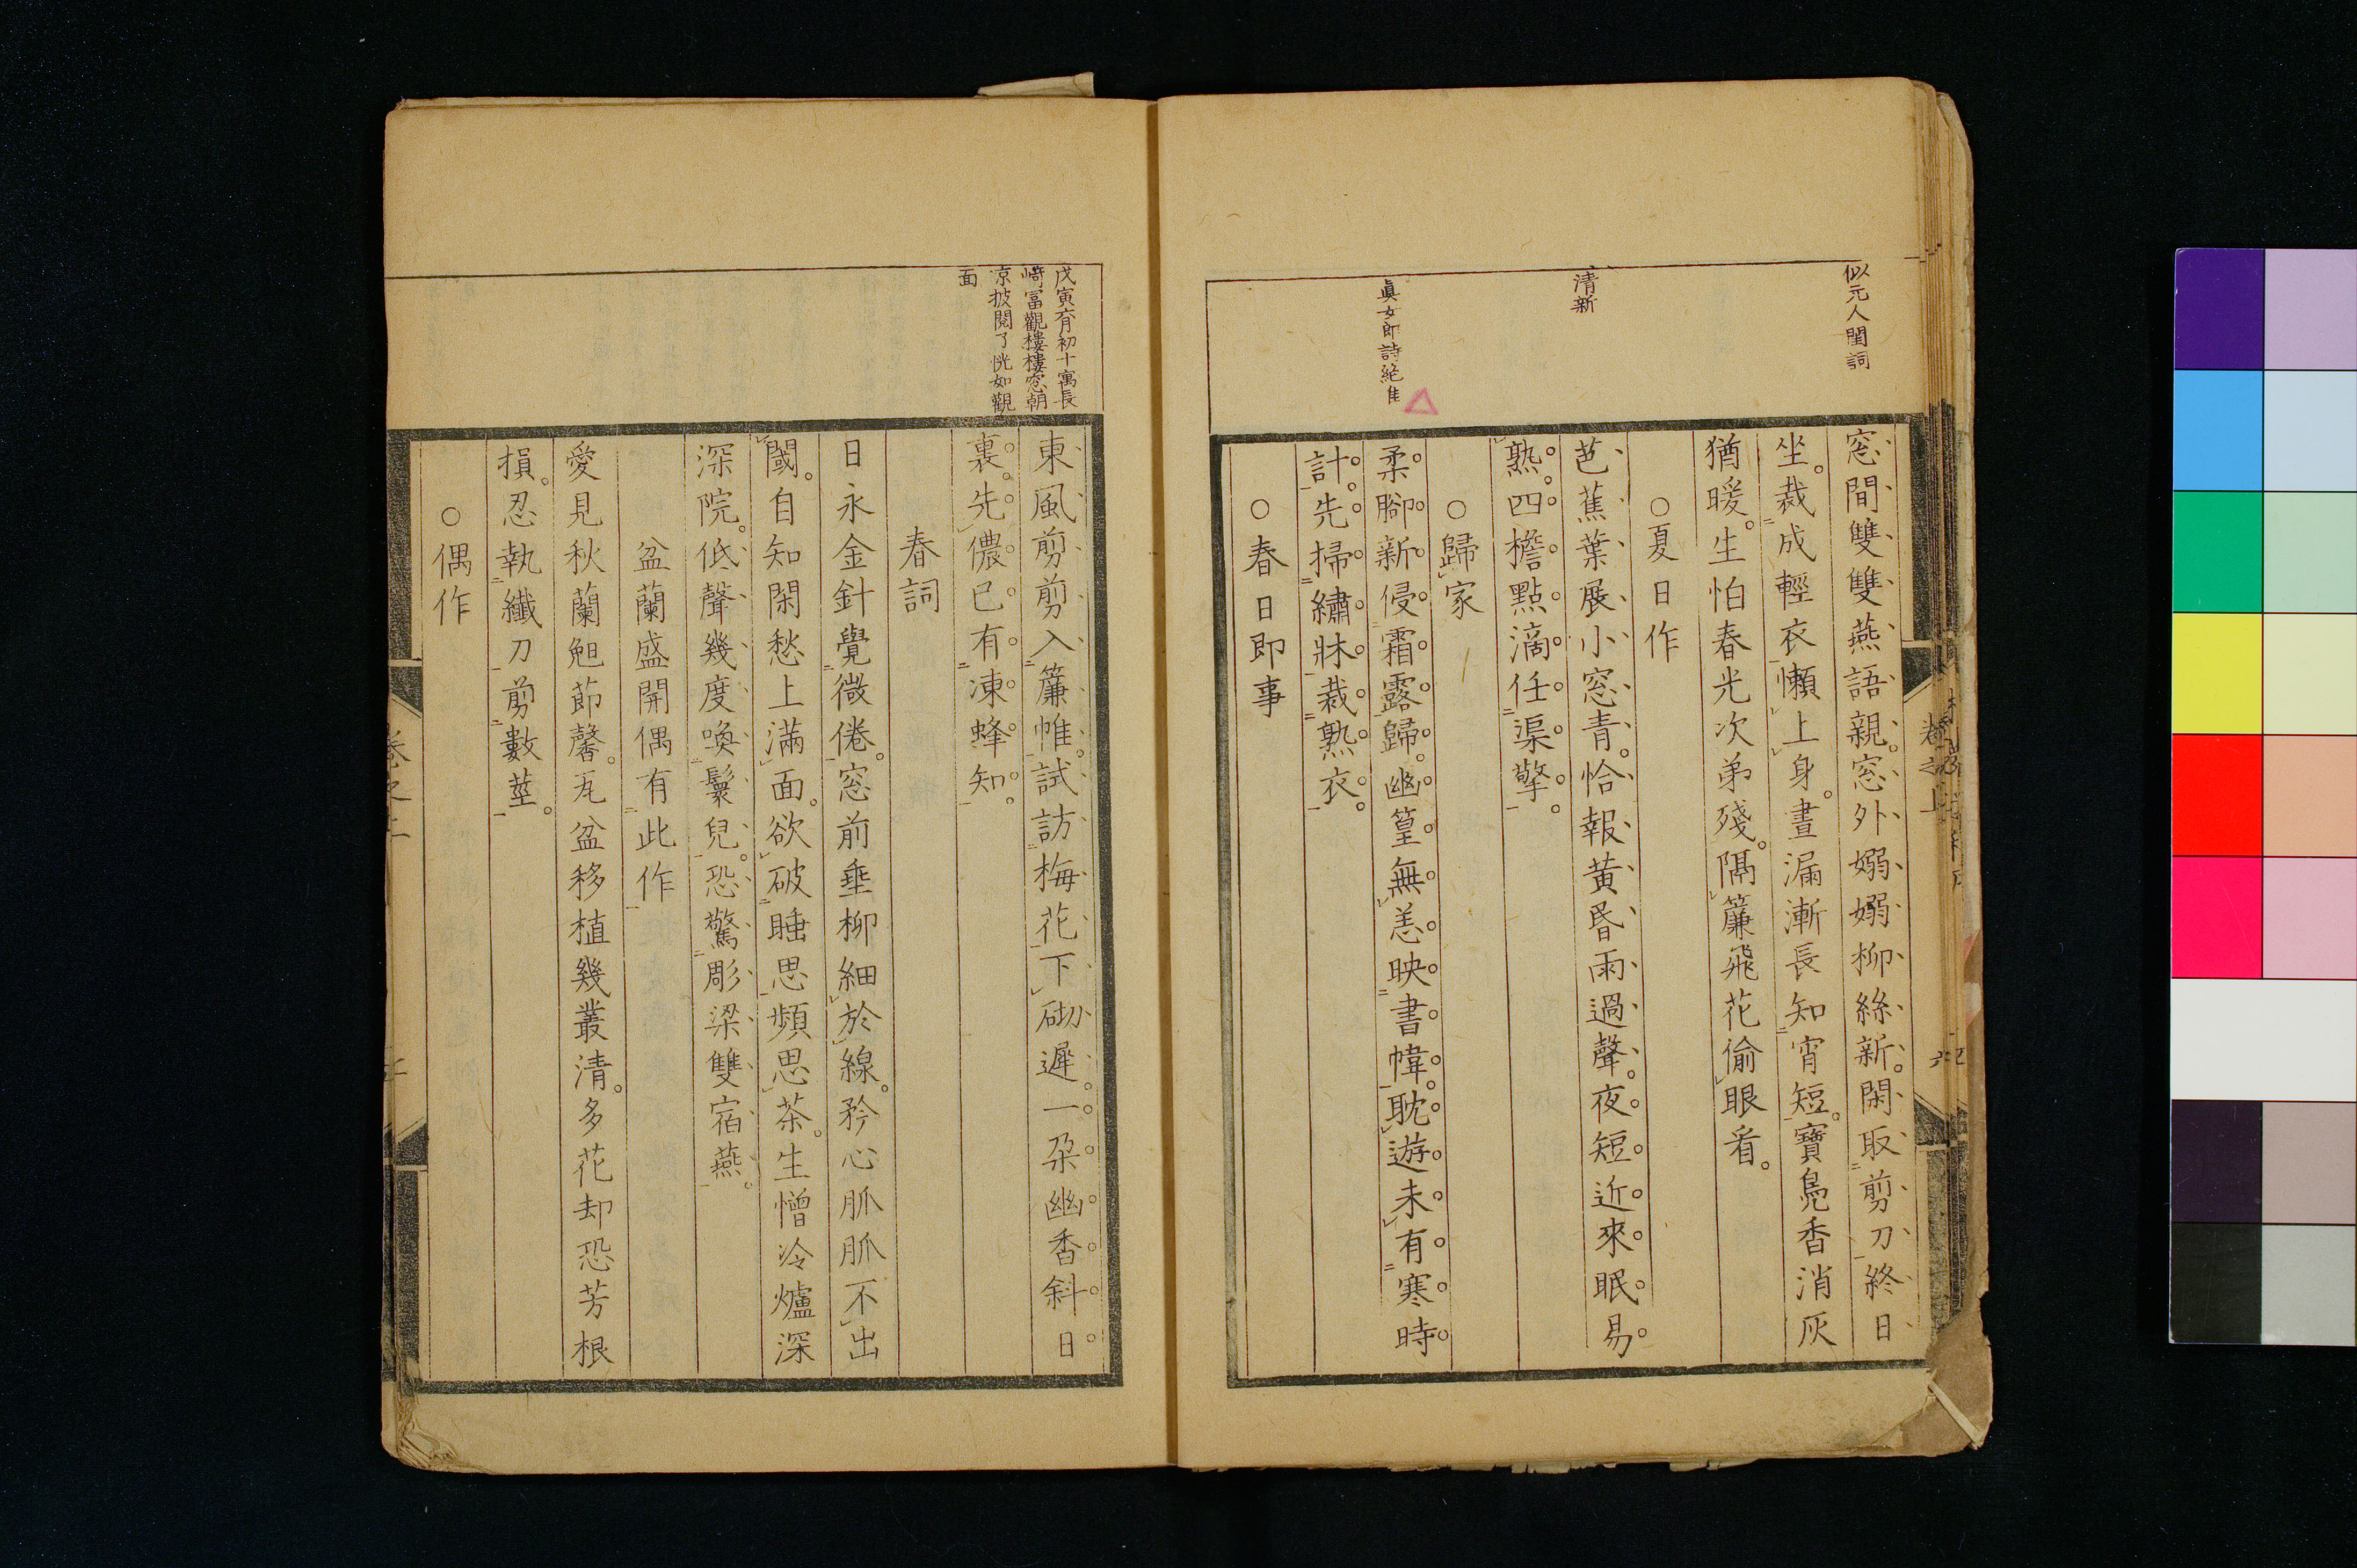 似元人閨詞
清新
眞女郎詩絶佳
窓間雙雙燕語親。窓外嫋嫋柳絲新。閑取剪刀終日
坐。裁成輕衣懶上身。晝漏漸長知宵短。寶鳧香消灰
猶暖。生怕春光次弟殘。隔簾飛花偷眼看。
○夏日作
芭蕉葉展小窓青。恰報黄昏雨過聲。夜短近來眠易
熟。四檐點滴任渠擎。
○歸家
柔腳新侵霜露歸。幽篁無恙映書幃。耽遊未有寒時
計。先掃繡牀裁熟衣。
○春日即事
卷之上
戊寅六月初十寓長
崎富觀樓樓窓朝
凉披閲了恍如觀
面
東風剪剪入簾帷。試訪梅花下砌遲。一朶幽香斜日
裏。先儂已有凍蜂知。
春詞
日永金針覺微倦。窓前垂柳細於線。矜心脈脈不出
閾。自知閑愁上滿面。欲破睡思頻思茶。生憎冷爐深
深院。低聲幾度喚鬟兒。恐驚彫梁雙宿燕。
盆蘭盛開偶有此作
愛見秋蘭⾊節馨。瓦盆移植幾叢清。多花却恐芳根
損。忍執纖刀剪數莖。
○偶作